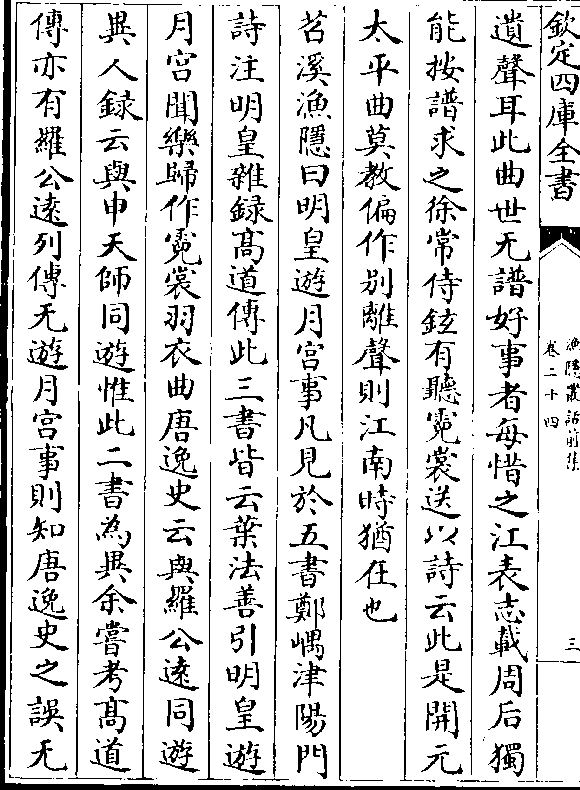 欽定四庫全書
漁隱叢話前集
卷二十四
三
遺聲耳此曲世无譜好事者每惜之江表志載周后獨
能按譜求之徐常侍鉉有聽霓裳送以詩云此是開元
太平曲莫教偏作别離聲則江南時猶在也
苕溪漁隱曰明皇遊月宫事凡見於五書鄭嵎津陽門
詩注明皇雜録髙道傳此三書皆云葉法善引明皇遊
月宫聞樂歸作霓裳羽衣曲唐逸史云與羅公逺同遊
異人録云與申天師同遊惟此二書為異余嘗考髙道
傳亦有羅公逺列傳无遊月宫事則知唐逸史之誤无